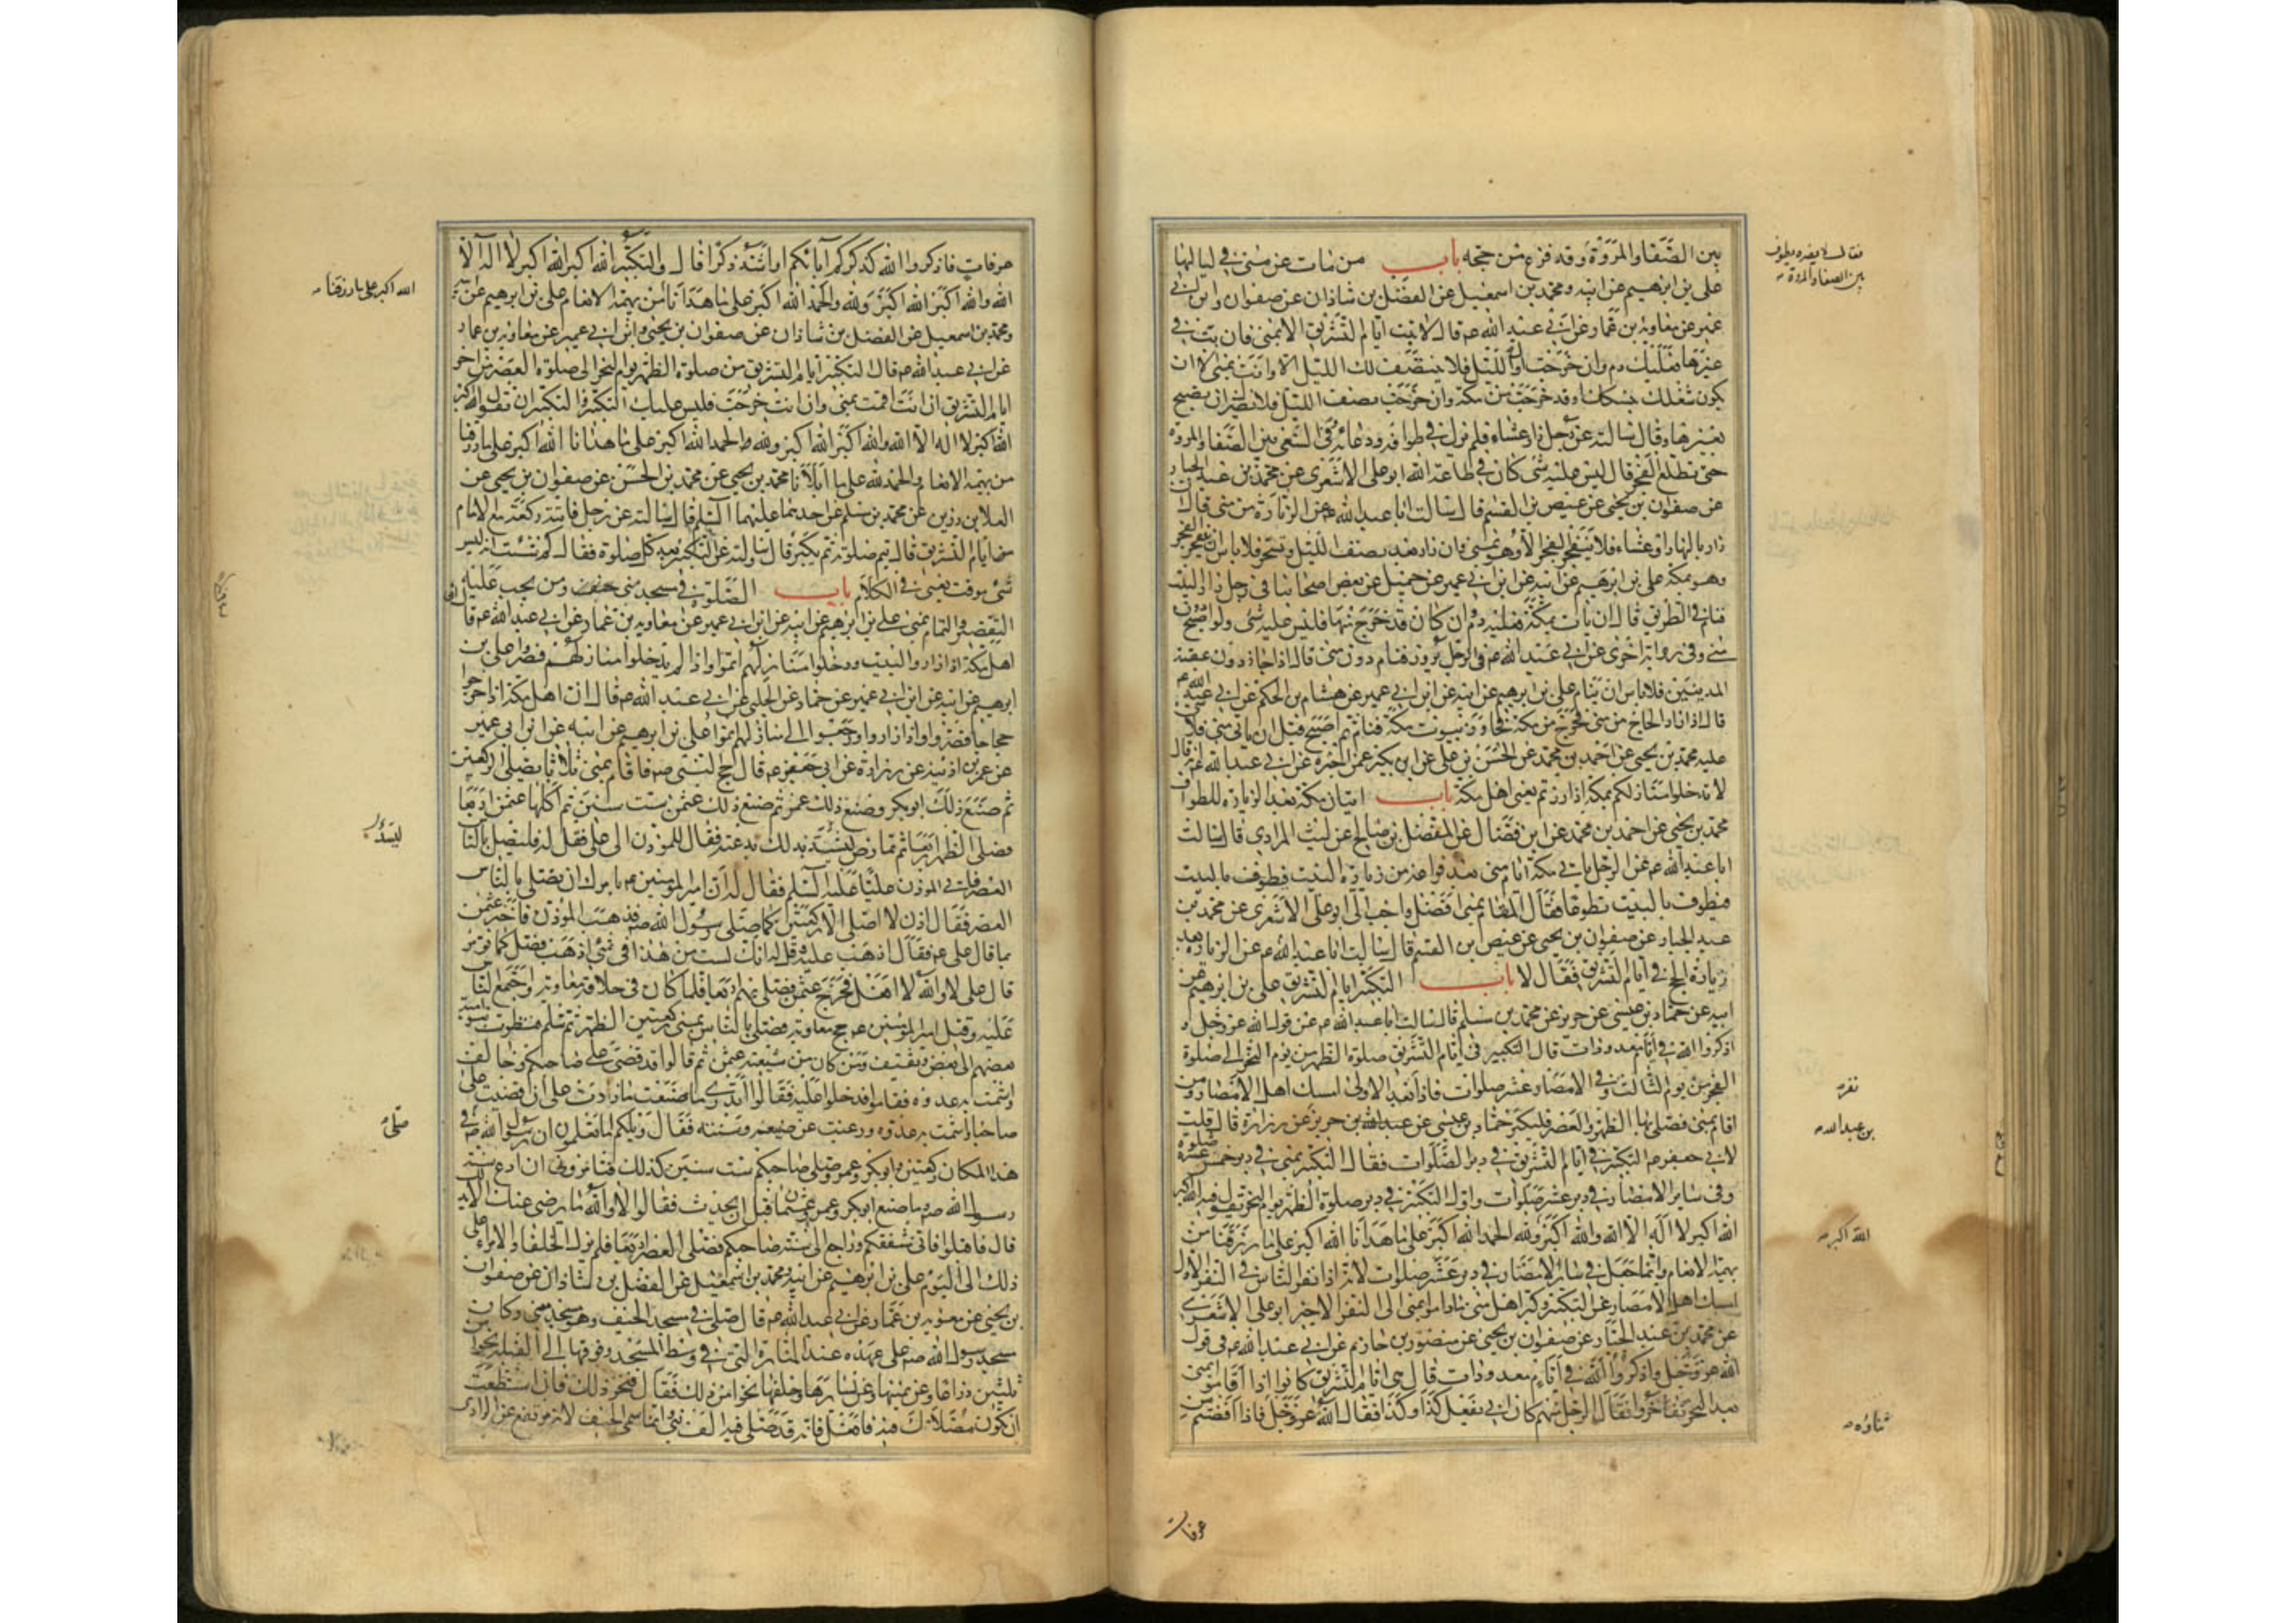 بين الصفا والمروة وقد فرغ من حجه باب من بات عن منى في لياليها
علي بن ابرهيم عن ابيه ومحمد بن اسمعيل عن الفضل بن شاذان عن صفوان وابن ابي
عمير عن معاوية بن عمار عن ابي عبد الله ع قال لا تبت ايام التشريق الا بمنى فان بت في
غيرها فعليك دم وان خرجت اول الليل فلا ينتصف لك الليل الا وانت بمنى الا ان
يكون شغلك بنسكك او قد خرجت من مكة وان خرجت نصف الليل فلا يضرك ان تصبح
بغيرها وقال سالته عن رجل زار عشاء فلم يزل في طوافه ودعائه وفي السعي بين الصفا والمروة
حتى تطلع الفجر قال ليس عليه شى كان في طاعة الله ابو علي الاشعري عن محمد بن عبد الجبار
عن صفوان بن يحيى عن عيص بن القسم قال سالت ابا عبد الله ع عن الزيارة من منى قال ان
زار بالنهار او عشاء فلا ينفجر الفجر الا وهو بمنى وان زار بعد نصف الليل وتسحر فلا باس ان ينفجر الفجر
وهو بمكة علي بن ابرهيم عن ابيه عن ابن ابي عمير عن جميل عن بعض اصحابنا في رجل زار البيت
فنام في الطريق قال ان بات بمكة فعليه دم وان كان قد خرج منها فليس عليه شى ولو اصبح دون
منى وفي رواية اخرى عن ابي عبد الله ع في الرجل يزور فنام دون منى قال اذا جاز دون عقبة
المدينيين فلا باس ان ينام علي بن ابرهيم عن ابيه عن ابن ابي عمير عن هشام بن الحكم عن ابي عبد الله ع
قال اذا زار الحاج من منى فخرج من مكة فجاوز بيوت مكة فنام ثم اصبح قبل ان ياتي منى فلا شى
عليه محمد بن يحيى عن احمد بن محمد عن الحسن بن علي عن ابن بكير عمن اخبره عن ابي عبد الله ع قال
لا تدخلوا منازلكم بمكة اذا زرتم يعني اهل مكة باب اتيان مكة بعد الزيارة للطواف
محمد بن يحيى عن احمد بن محمد عن ابن فضال عن المفضل بن صالح عن ليث المرادي قال سالت
ابا عبد الله ع عن الرجل ياتي مكة ايام منى بعد فراغه من زيارة البيت فيطوف بالبيت
فيطوف بالبيت تطوعا فقال المقام بمنى افضل واحب الي ابو علي الاشعري عن محمد بن
عبد الجبار عن صفوان بن يحيى عن عيص بن القسم قال سالت ابا عبد الله ع عن الزيارة بعد
زيارة الحج في ايام التشريق فقال لا باب التكبير ايام التشريق علي بن ابرهيم عن
ابيه عن حماد بن عيسى عن حريز عن محمد بن مسلم قال سالت ابا عبد الله ع عن قول الله عز وجل و
اذكروا الله في ايام معدودات قال التكبير في ايام التشريق صلوة الظهر من يوم النحر الى صلوة
الفجر من يوم الثالث وفي الامصار عشر صلوات فاذا نفر بعد الاولى امسك اهل الامصار ومن
اقام بمنى فصلى بها الظهر والعصر فليكبر حماد بن عيسى عن عبد الله بن حريز عن زرارة قال قلت
لابي جعفر ع التكبير في ايام التشريق في دبر الصلوات فقال التكبير بمنى في دبر خمس عشرة صلوة
وفي ساير الامصار في دبر عشر صلوات واول التكبير في دبر صلوة الظهر يوم النحر يقول فيه الله اكبر
الله اكبر لا اله الا الله والله اكبر ولله الحمد الله اكبر على ما هدانا الله اكبر على ما رزقنا من
بهيمة الانعام وانما جعل في سائر الامصار في دبر عشر صلوات لانه اذا نفر الناس في النفر الاول
امسك اهل الامصار عن التكبير وكبر اهل منى ماداموا بمنى الى النفر الاخير ابو علي الاشعري
عن محمد بن عبد الجبار عن صفوان بن يحيى عن منصور بن حازم عن ابي عبد الله ع في قول
الله عز وجل واذكروا الله في ايام معدودات قال هي ايام التشريق كانوا اذا اقاموا بمنى
بعد النحر تفاخروا فقال الرجل منهم كان ابي يفعل كذا وكذا فقال الله عز وجل فاذا افضتم من
عرفات
فقال لا يضره يطوف
بين الصفا والمروة
نفر
بن عبد الله
الله اكبر
عرفات فاذكروا الله كذكركم آباءكم او اشد ذكرا قال والتكبير الله اكبر الله اكبر لا اله الا
الله والله اكبر الله اكبر ولله والحمد الله اكبر على ما هدانا من بهيمة الانعام علي بن ابرهيم عن ابيه
ومحمد بن اسمعيل عن الفضل بن شاذان عن صفوان بن يحيى وابن ابي عمير عن معاوية بن عمار
عن ابي عبد الله ع قال التكبير ايام التشريق من صلوة الظهر يوم النحر الى صلوة العصر من اخر
ايام التشريق ان انت اقمت بمنى وان انت خرجت فليس عليك التكبير والتكبير ان تقول الله اكبر
الله اكبر لا اله الا الله والله اكبر الله اكبر ولله الحمد الله اكبر على ما هدانا الله اكبر على ما رزقنا
من بهيمة الانعام والحمد لله على ما ابلانا محمد بن يحيى عن محمد بن الحسن عن صفوان بن يحيى عن
العلا بن رزين عن محمد بن مسلم عن احدهما عليهما السلم قال سالته عن رجل فاتته ركعة مع الامام
من ايام التشريق قال يتم صلوته ثم يكبر قال وسالته عن التكبير بعد كل صلوة فقال كم شئت انه ليس
شى موقت يعني في الكلام باب الصلوة في مسجد منى ومن يجب عليه
التقصير والتمام بمنى علي بن ابرهيم عن ابيه عن ابن ابي عمير عن معاوية بن عمار عن ابي عبد الله ع قال
اهل مكة اذا زاروا البيت ودخلوا منازلهم اتموا واذا لم يدخلوا منازلهم قصروا علي بن
ابرهيم عن ابيه عن ابن ابي عمير عن حماد عن الحلبي عن ابي عبد الله ع قال ان اهل مكة اذا خرجوا
حجاجا قصروا واذا زاروا ورجعوا الى منازلهم اتموا علي بن ابرهيم عن ابيه عن ابن ابي عمير
عن عمر بن اذينة عن زرارة عن ابي جعفر ع قال حج النبي ص فاقام بمنى ثلاثا يصلي ركعتين
ثم صنع ذلك ابو بكر وصنع ذلك عمر ثم صنع ذلك عثمن ست سنين ثم اكملها عثمن اربعا
فصلى الظهر اربعا ثم تمارض ليشد بذلك بدعته فقال للموذن اذهب الى علي فقل له فليصل بالناس
العصر فاتى الموذن عليا عليه السلم فقال له ان امير المومنين ع يامرك ان تصلي بالناس
العصر فقال اذن لا اصلي الا ركعتين كما صلى رسول الله ص فذهب الموذن فاخبر عثمن
بما قال علي ع فقال اذهب عليه وقل له انك لست من هذا في شى اذهب فصل كما تومر
قال علي لا والله لا افعل فخرج عثمن فصلى بهم اربعا فلما كان في خلافة معاوية واجتمع الناس
عليه وقتل امير المومنين ع حج معاوية فصلى بالناس بمنى ركعتين الظهر ثم سلم فنظرت بنو امية
بعضهم الى بعض وثقيف ومن كان من شيعة عثمن ثم قالوا قد قضى على صاحبكم وخالف
واشمت به عدوه فقاموا فدخلوا عليه فقالوا اتدري ما صنعت ما زدت على ان قضيت على
صاحبنا واشمت به عدوه ورغبت عن صنيعه وسنته فقال ويلكم اما تعلمون ان رسول الله ص صلى في
هذا المكان ركعتين وابو بكر وعمر وصلى صاحبكم ست سنين كذلك فتامروني ان ادع سنة
رسول الله ص وما صنع ابو بكر وعمر وعثمن قبل ان يحدث فقالوا لا والله ما نرضى عنك الا بذلك
قال فاقبلوا فاني مشفعكم وراجع الى سنة صاحبكم فصلى العصر اربعا فلم يزل الخلفاء والامراء على
ذلك الى اليوم علي بن ابرهيم عن ابيه ومحمد بن اسمعيل عن الفضل بن شاذان عن صفوان
بن يحيى عن معوية بن عمار عن ابي عبد الله ع قال صل في مسجد الخيف وهو مسجد منى وكان
مسجد رسول الله ص على عهده عند المنارة التي في وسط المسجد وفوقها الى القبلة نحوا من
ثلثين ذراعا وعن يمينها وعن يسارها وخلفها نحوا من ذلك فقال فتحر ذلك فان استطعت
ان يكون مصلاك فيه فافعل فانه قد صلى فيه الف نبي وانما سمي الخيف لانه مرتفع عن الوادي
الله اكبر على ما رزقنا
ليشد
صلى